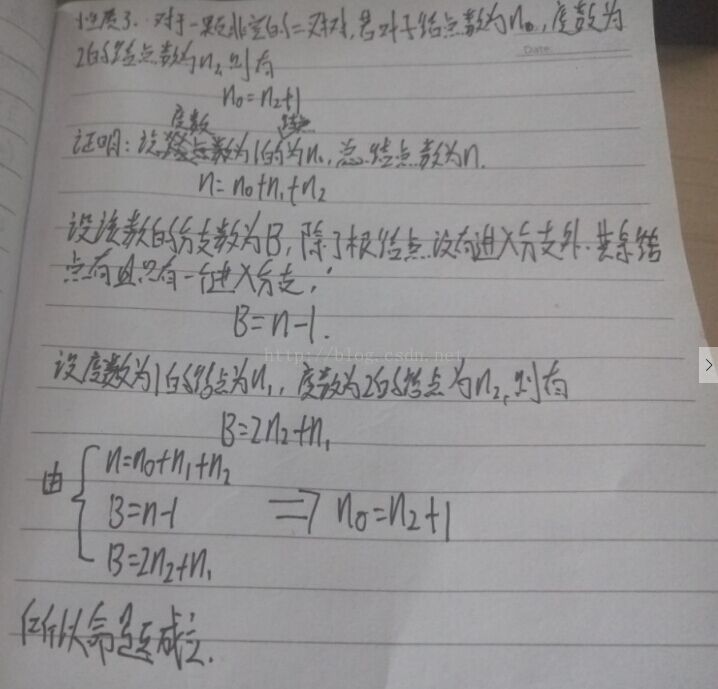 性质3. 对于一颗非空的二叉树,若叶子结点数为n₀,度数为
Date
2的结点数为n₂,则有
n₀=n₂+1
度数 结点
证明:设数为1的为n₁,总结点数为n.
n=n₀+n₁+n₂
设该数的分支数为B,除了根结点没有进入分支外.其余结
点有且只有一个进入分支,
B=n-1.
http://blog.csdn.net
设度数为1的结点为n₁,度数为2的结点为n₂,则有
B=2n₂+n₁
由
n=n₀+n₁+n₂
B=n-1 => n₀=n₂+1
B=2n₂+n₁
所以命题成立.